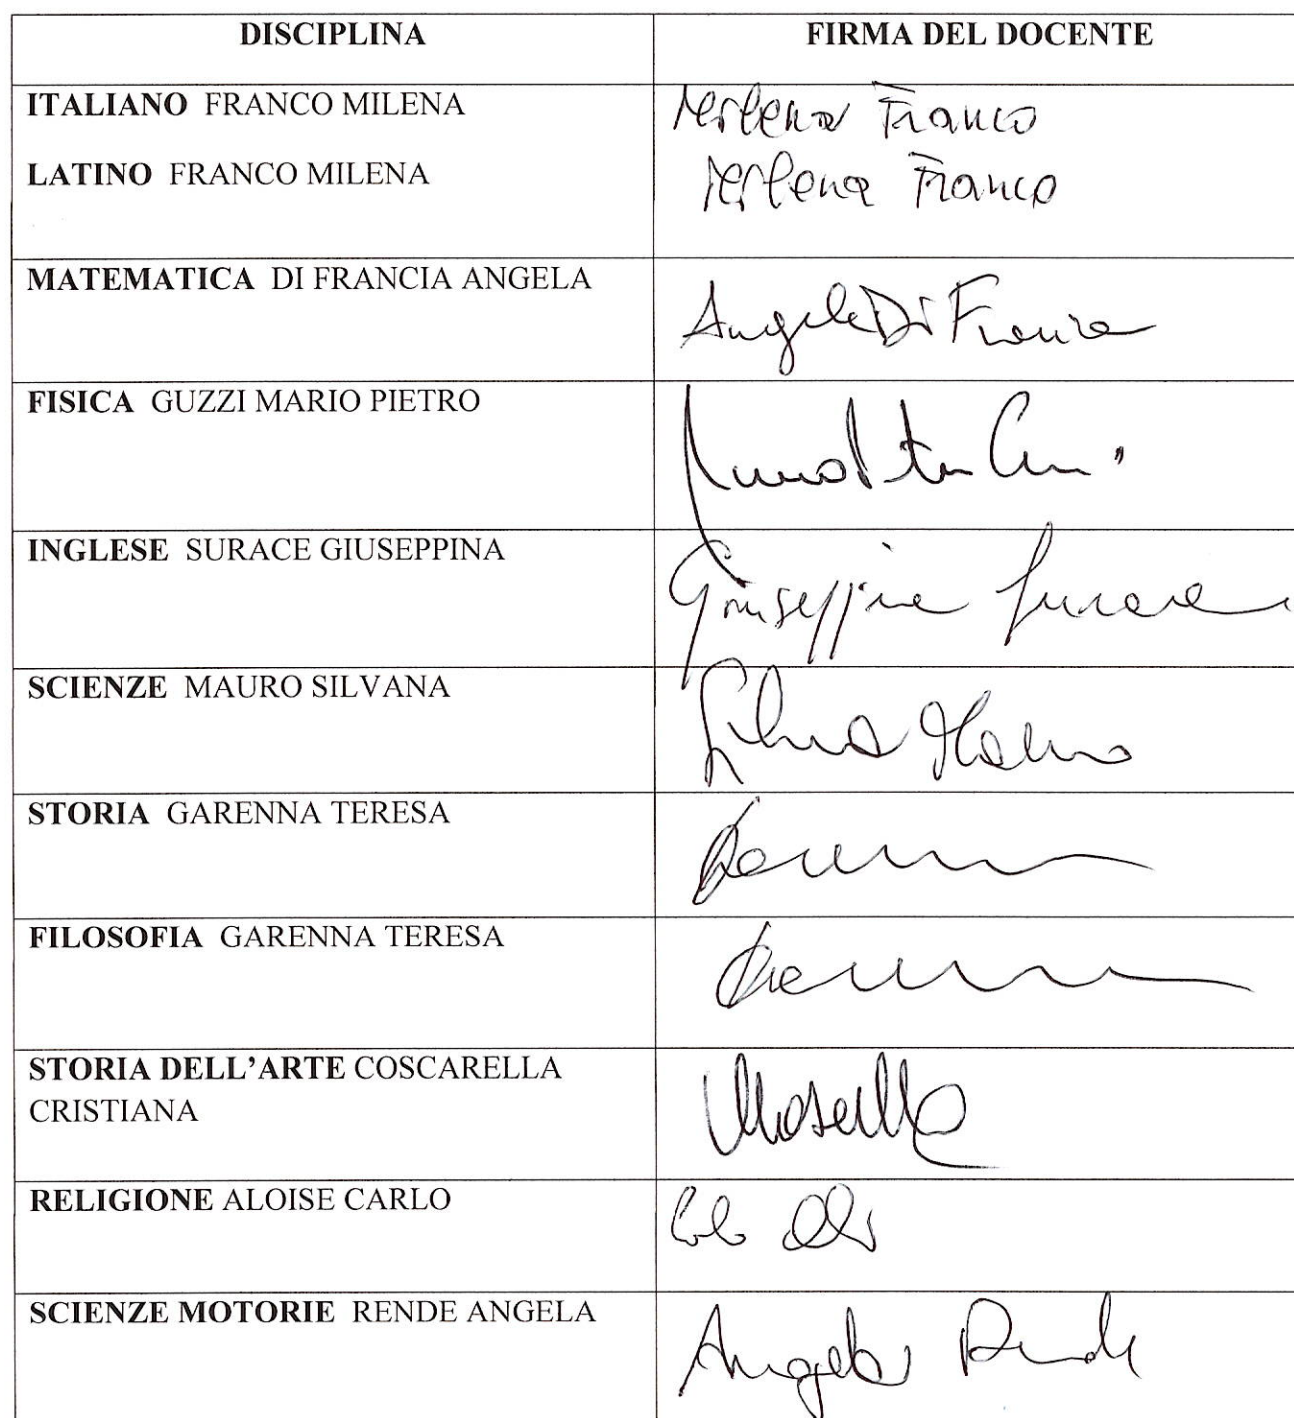 DISCIPLINA FIRMA DEL DOCENTE
ITALIANO FRANCO MILENA Milena Franco
LATINO FRANCO MILENA Milena Franco
MATEMATICA DI FRANCIA ANGELA Angela Di Francia
FISICA GUZZI MARIO PIETRO
INGLESE SURACE GIUSEPPINA Giuseppina Surace
SCIENZE MAURO SILVANA Silvana Mauro
STORIA GARENNA TERESA
FILOSOFIA GARENNA TERESA
STORIA DELL'ARTE COSCARELLA
CRISTIANA
RELIGIONE ALOISE CARLO
SCIENZE MOTORIE RENDE ANGELA Angela Rende